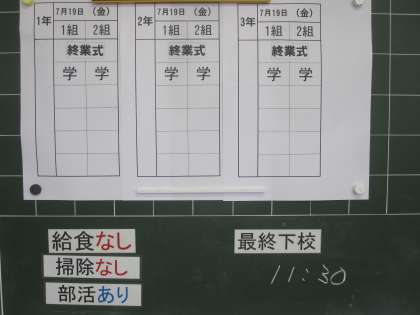 1年 7月19日 (金)
1組 2組
終業式
学 学
2年 7月19日 (金)
1組 2組
終業式
学 学
3年 7月19日 (金)
1組 2組
終業式
学 学
給食なし
掃除なし
部活あり
最終下校
11:30